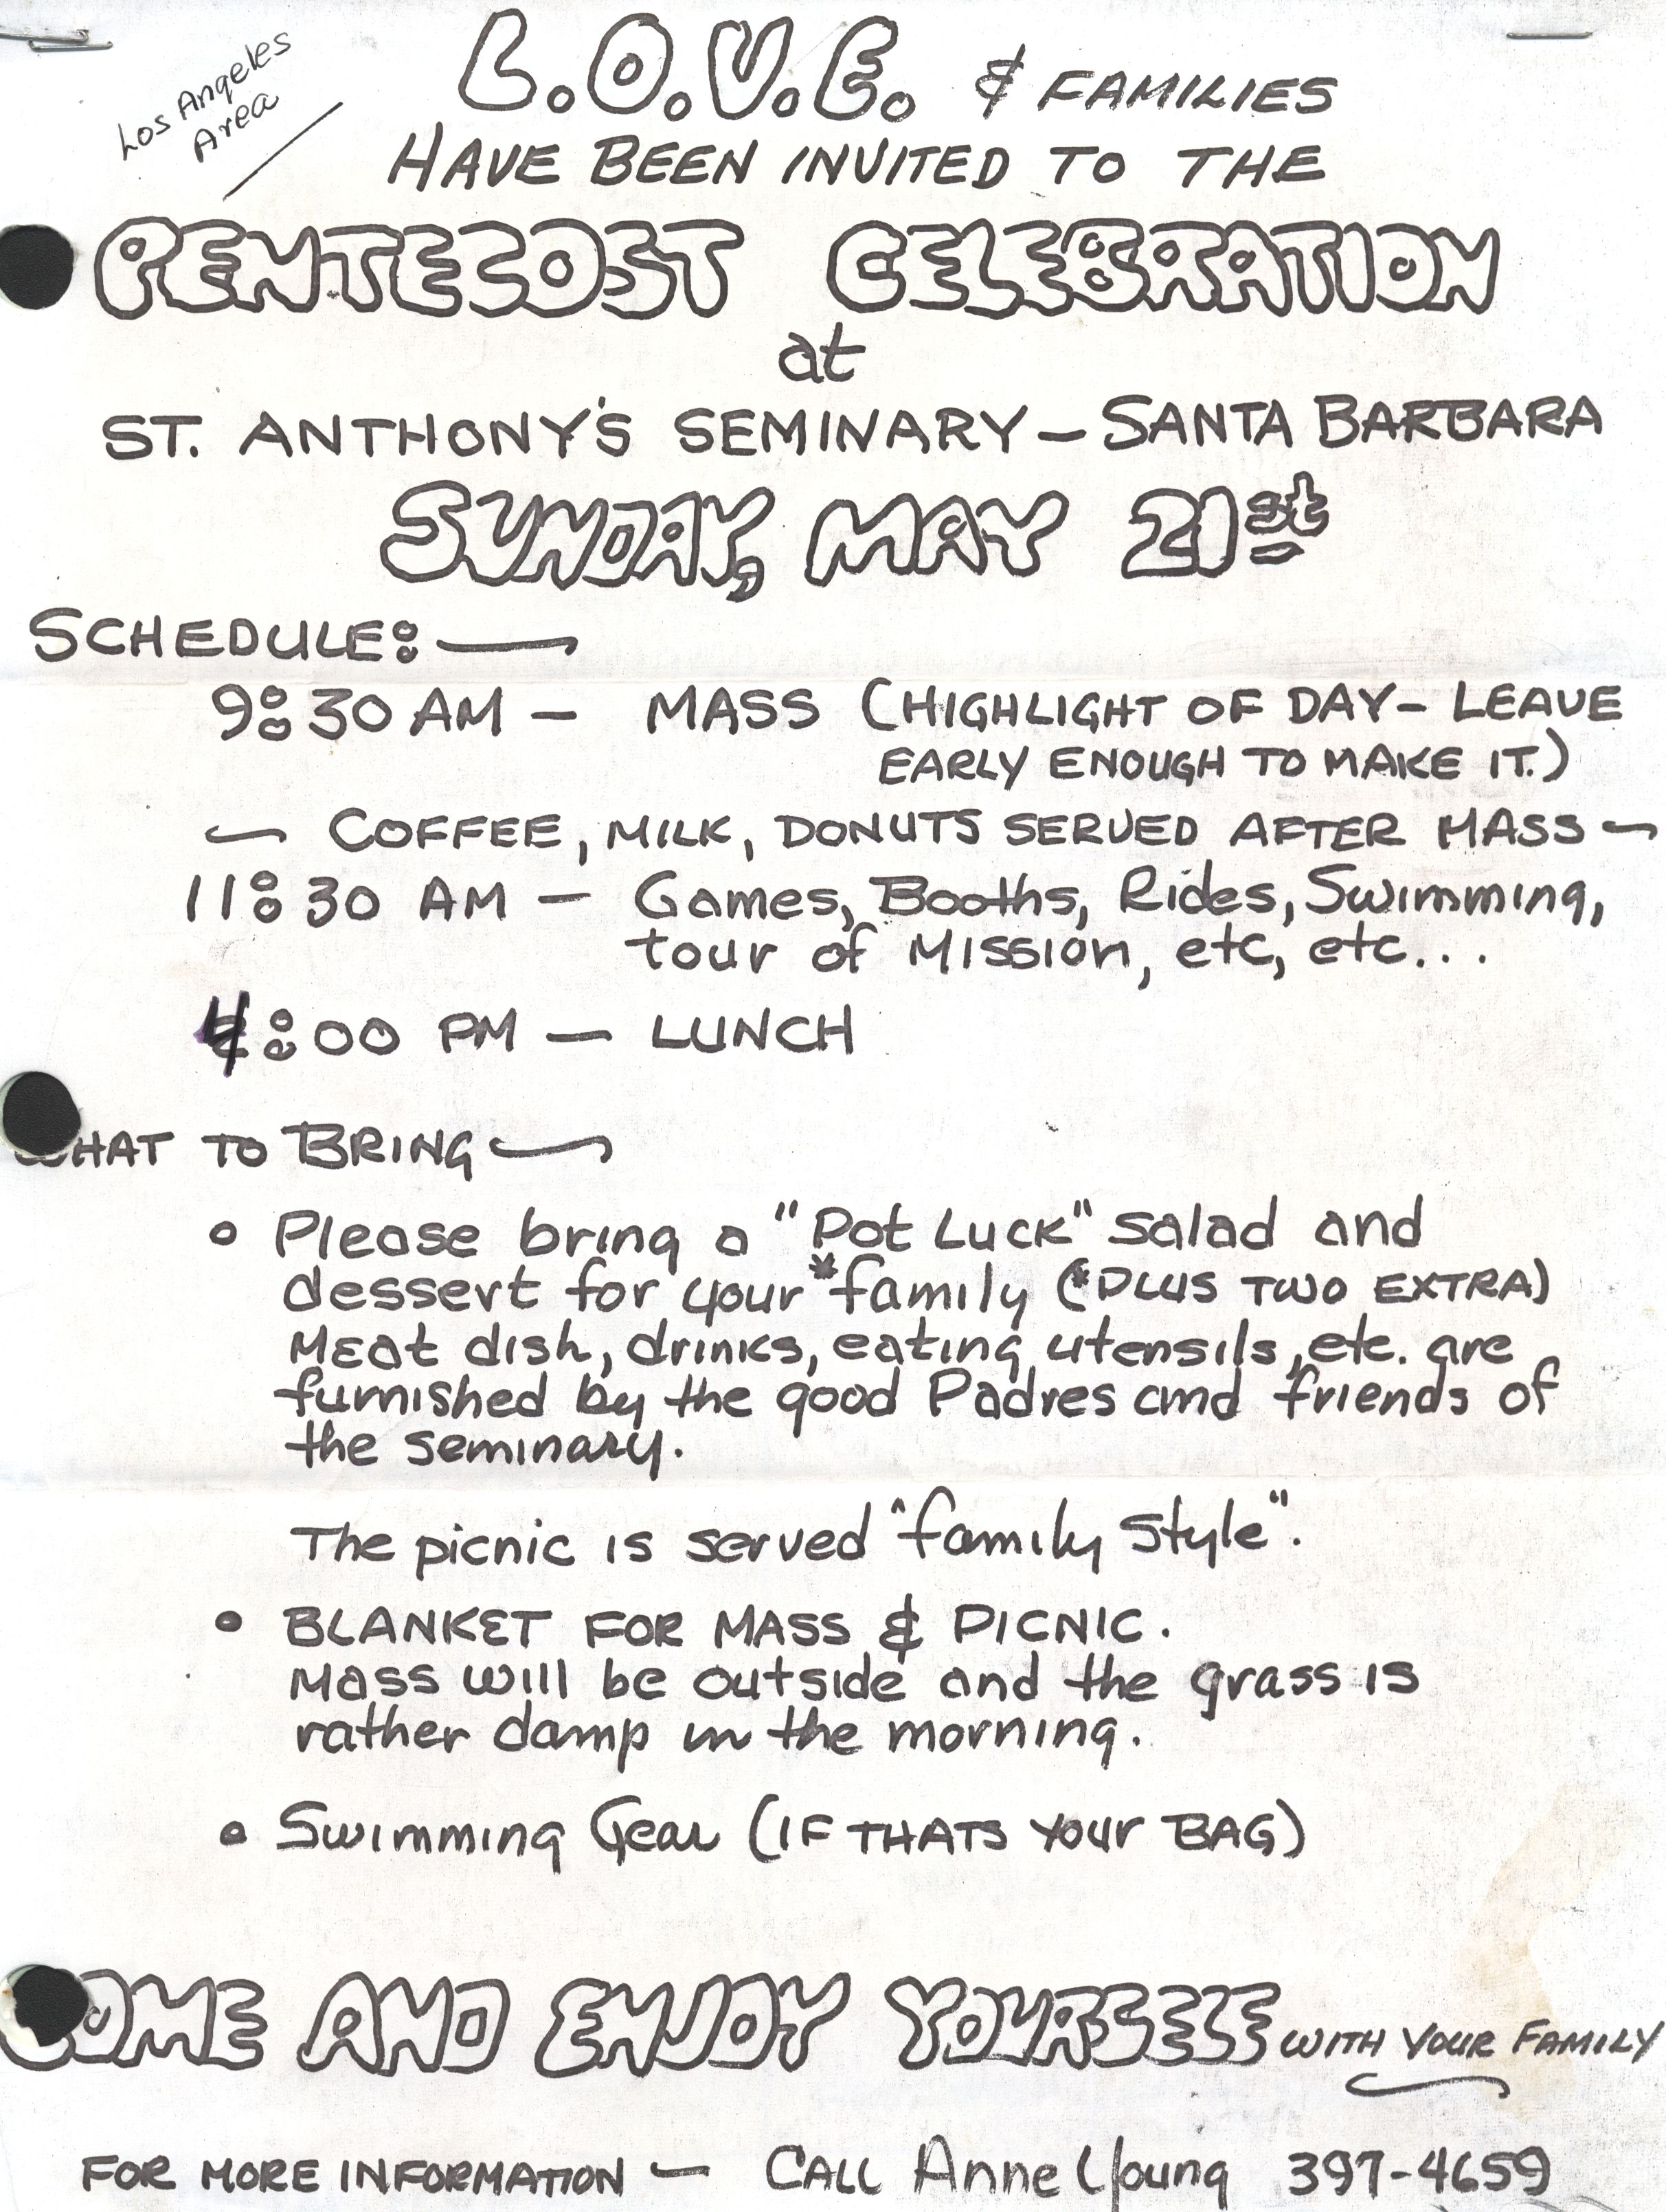 Los Angeles
Area
L.O.V.E. & FAMILIES
HAVE BEEN INVITED TO THE
PENTECOST CELEBRATION
at
ST. ANTHONY'S SEMINARY — SANTA BARBARA
SUNDAY, MAY 21st
SCHEDULE: —
9:30 AM — MASS (HIGHLIGHT OF DAY - LEAVE
EARLY ENOUGH TO MAKE IT.)
— COFFEE, MILK, DONUTS SERVED AFTER MASS —
11:30 AM — Games, Booths, Rides, Swimming,
tour of MISSION, etc, etc...
4:00 PM — LUNCH
WHAT TO BRING —
• Please bring a "Pot Luck" salad and
dessert for your *family (*PLUS TWO EXTRA)
Meat dish, drinks, eating utensils, etc. are
furnished by the good Padres and friends of
the seminary.
The picnic is served "family style".
• BLANKET FOR MASS & PICNIC.
Mass will be outside and the grass is
rather damp in the morning.
• Swimming Gear (IF THATS YOUR BAG)
COME AND ENJOY YOURSELF WITH YOUR FAMILY
FOR MORE INFORMATION — CALL Anne Young 397-4659